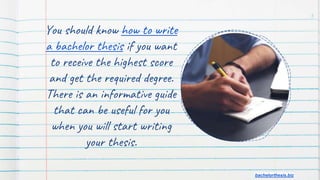 You should know how to write
a bachelor thesis if you want
to receive the highest score
and get the required degree.
There is an informative guide
that can be useful for you
when you will start writing
your thesis.
bachelorthesis.biz